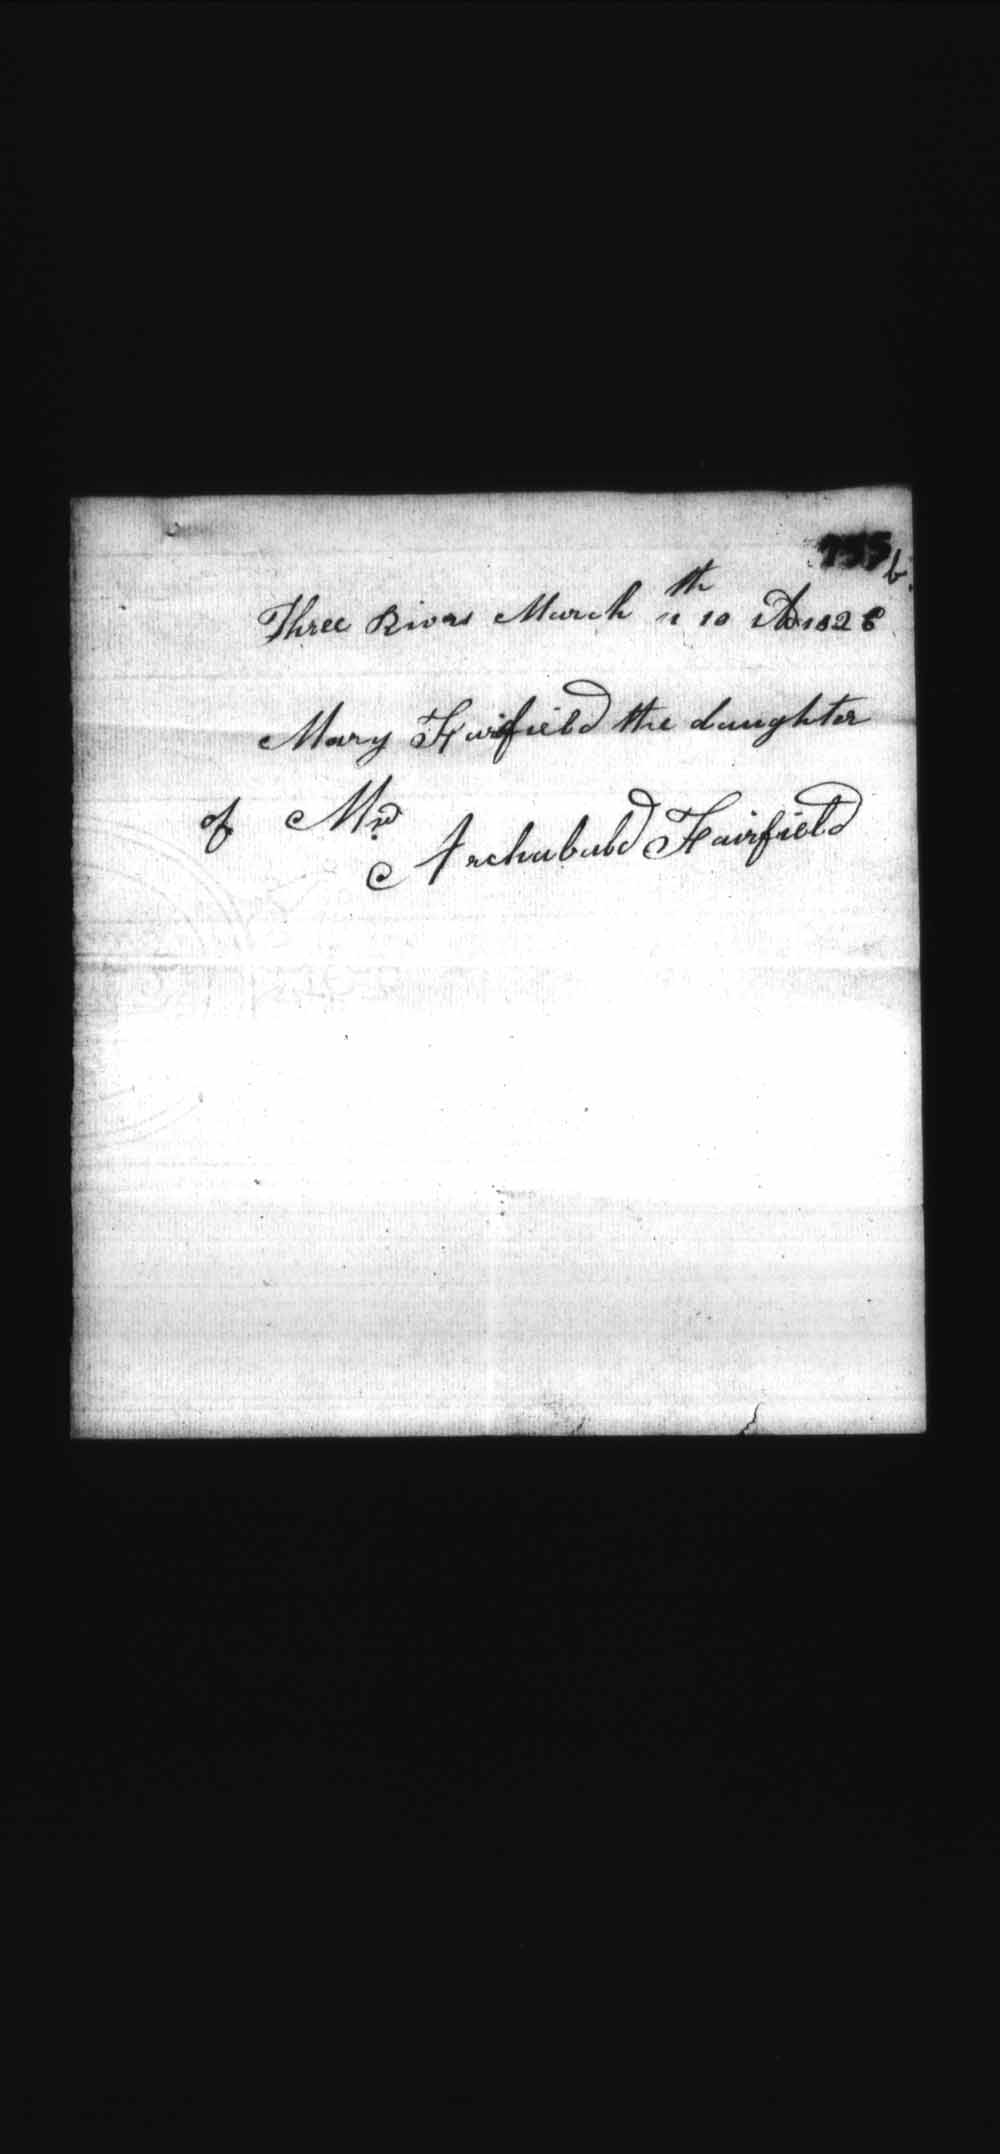 755 b.
Three Rivers March th 10 AD 1828
Mary Fairfield the daughter
of Mr
Archabald Fairfield